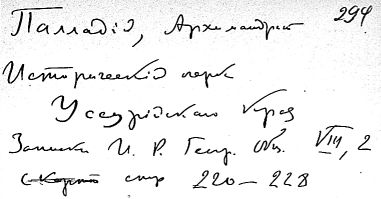 294
Палладiй, Архимандрит
Историческiй очерк
Уссурiйскаго Края
Записки И. Р. Геогр. Общ. VIII, 2
стр 220—228